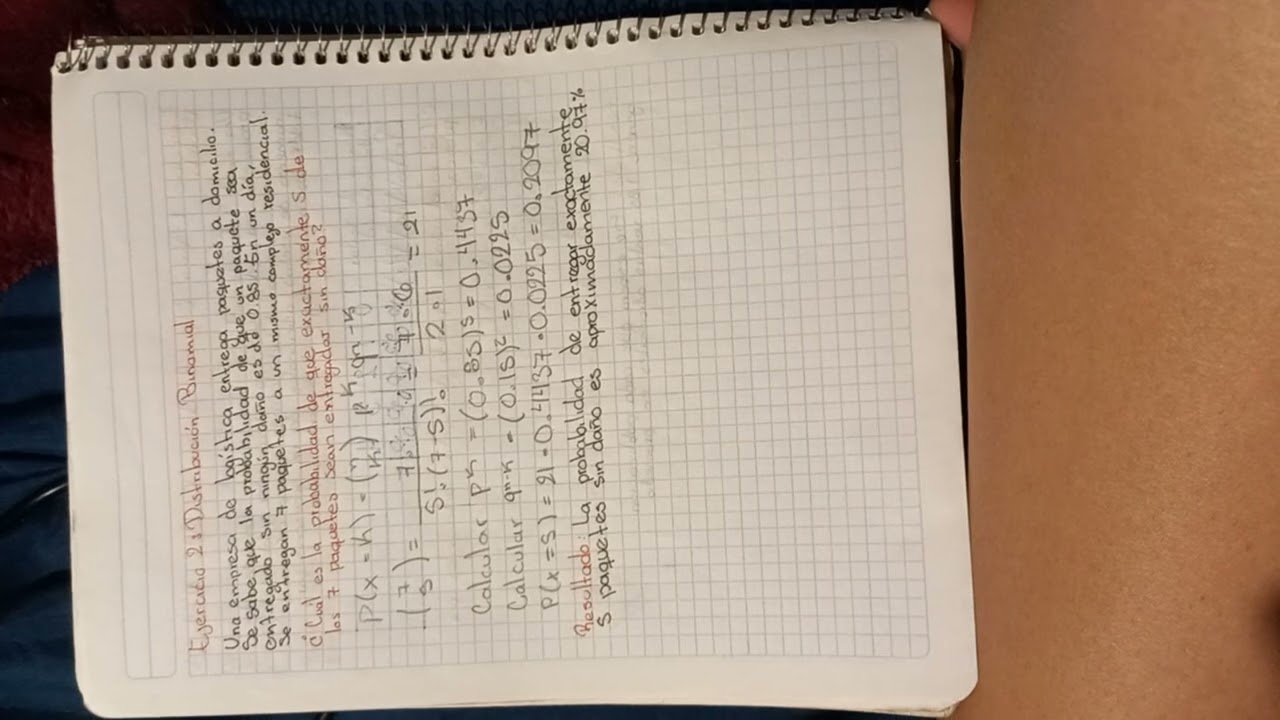 Ejercicio 2: Distribución Binomial
Una empresa de logística entrega paquetes a domicilio.
Se sabe que la probabilidad de que un paquete sea
entregado sin ningún daño es de 0.85. En un día,
Se entregan 7 paquetes a un mismo complejo residencial.
¿Cuál es la probabilidad de que exactamente 5 de
los 7 paquetes sean entregados sin daño?
P(x = k) = (n k) p^k · q^n-k
(7 5) = 7! / 5!·(7-5)! = 7·6 / 2·1 = 21
Calcular p^k = (0.85)^5 = 0.4437
Calcular q^n-k = (0.15)^2 = 0.0225
P(x = 5) = 21 · 0.4437 · 0.0225 = 0.2097
Resultado: La probabilidad de entregar exactamente
5 paquetes sin daño es aproximadamente 20.97%